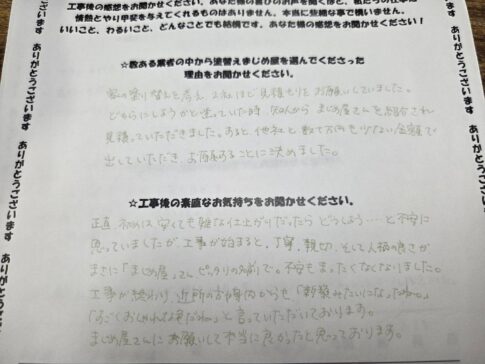 工事後の感想をお聞かせください。あなた様の喜びのお声を聞くほど、私たちの仕事に
情熱とやり甲斐を与えてくれるものはありません。本当に些細な事で構いません。
いいこと、わるいこと、どんなことでも結構です。あなた様の感想をお聞かせください！
☆数ある業者の中から塗替えまじめ屋を選んでくださった
理由をお聞かせください。
家の塗り替えを考え、2社ほど見積もりをお願いしていました。
どちらにしようかと迷っていた時、知人からまじめ屋さんを紹介され
見積っていただきました。すると他社と数十万円も少ない金額で
出していただき、お願いすることに決めました。
☆工事後の素直なお気持ちをお聞かせください。
正直、初めは安くても雑な仕上がりだったらどうしよう…と不安に
思っていましたが、工事が始まると、丁寧、親切、そして人柄の良さが
まさに「まじめ屋」さんピッタリの名前で。不安もまったくなくなりました。
工事が終わり、近所の方や身内からも「新築みたいになったね。」
「すごくおしゃれな家だね。」と言っていただいております。
まじめ屋さんにお願いして本当に良かったと思っております。
ありがとうございます　ありがとうございます　ありがとうございます
ありがとうございます　ありがとうございます　ありがとうございます